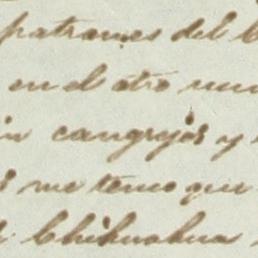 patrones del
en el otro mun
cangrejos y
me temo que
Chihuahua